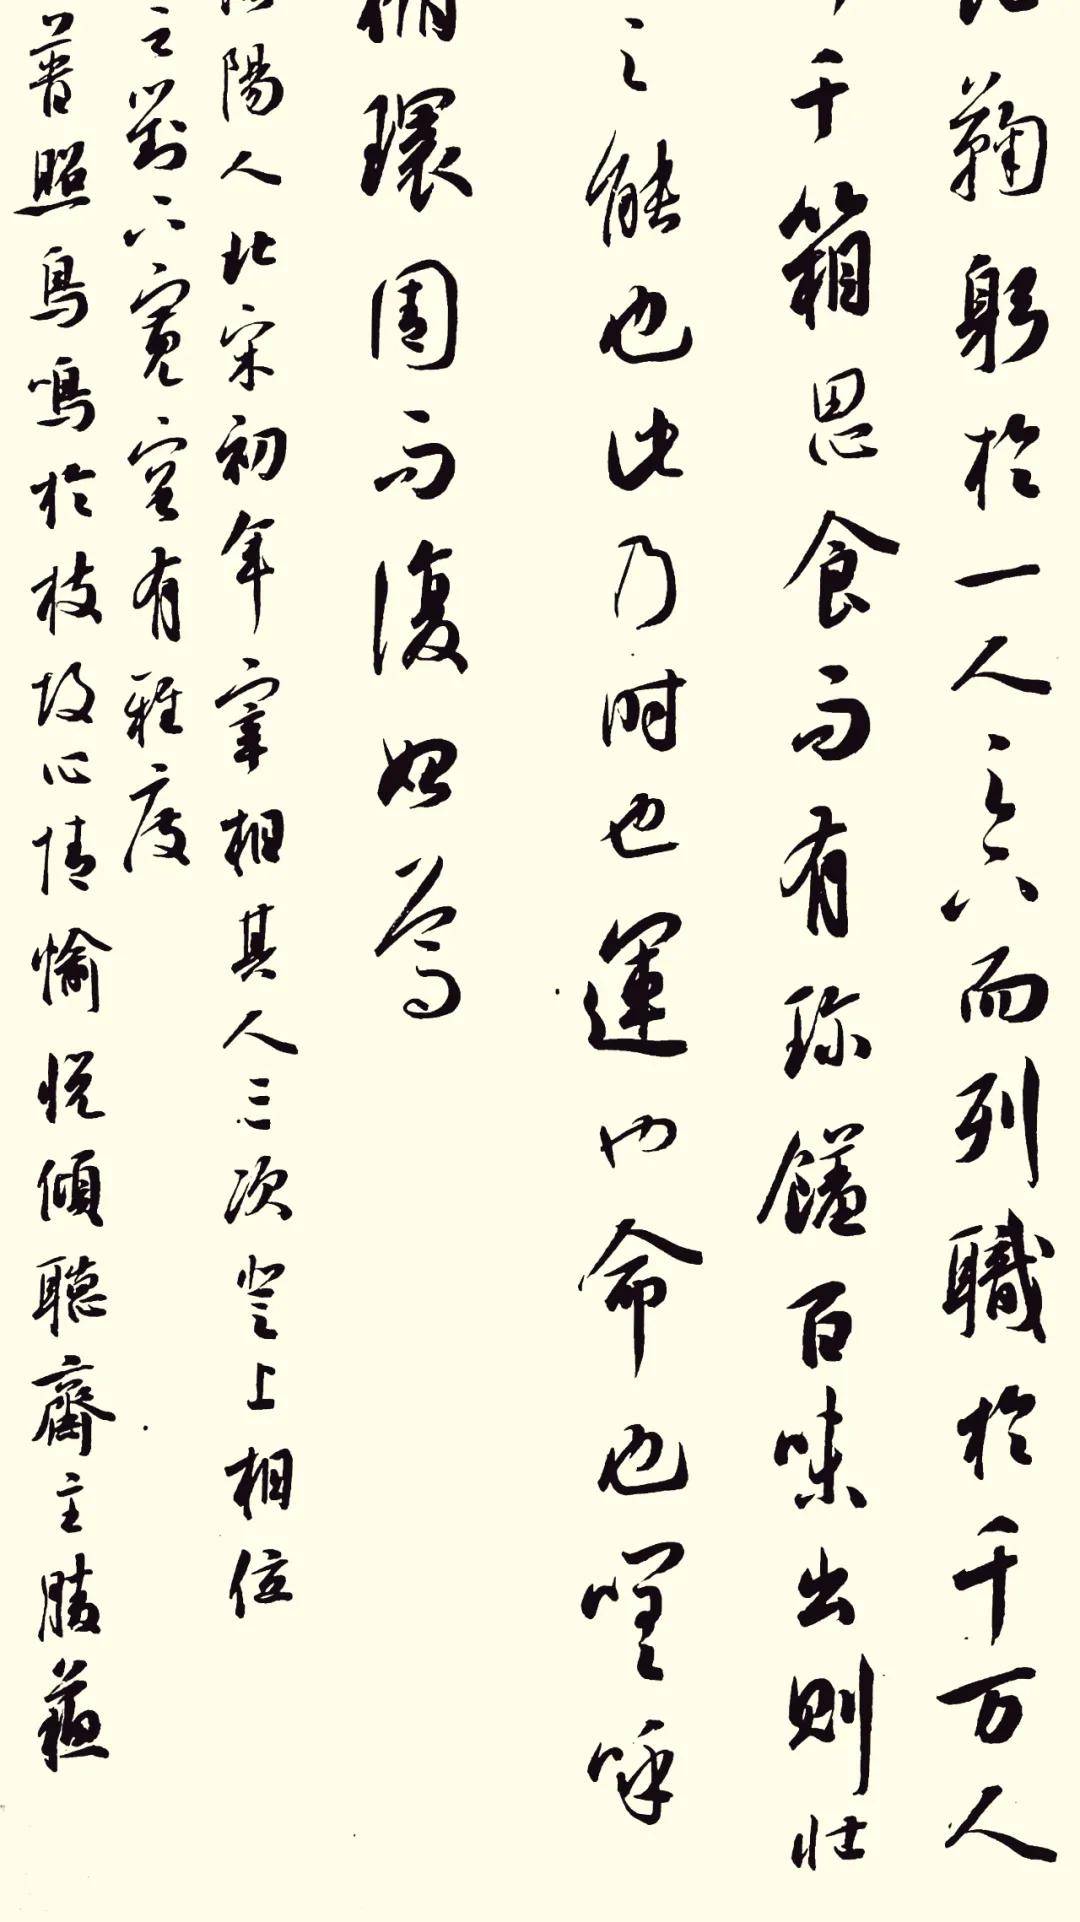 鞠躬於一人之下而列職於千万人
千箱思食而有珍饈百味出則壮
之能也此乃时也運也命也嗟呼
循環周而復始焉
陽人北宋初年宰相其人三次登上相位
之對下寬容有雅度
普照鳥鳴於枝故心情愉悅傾聽齋主勝蘇